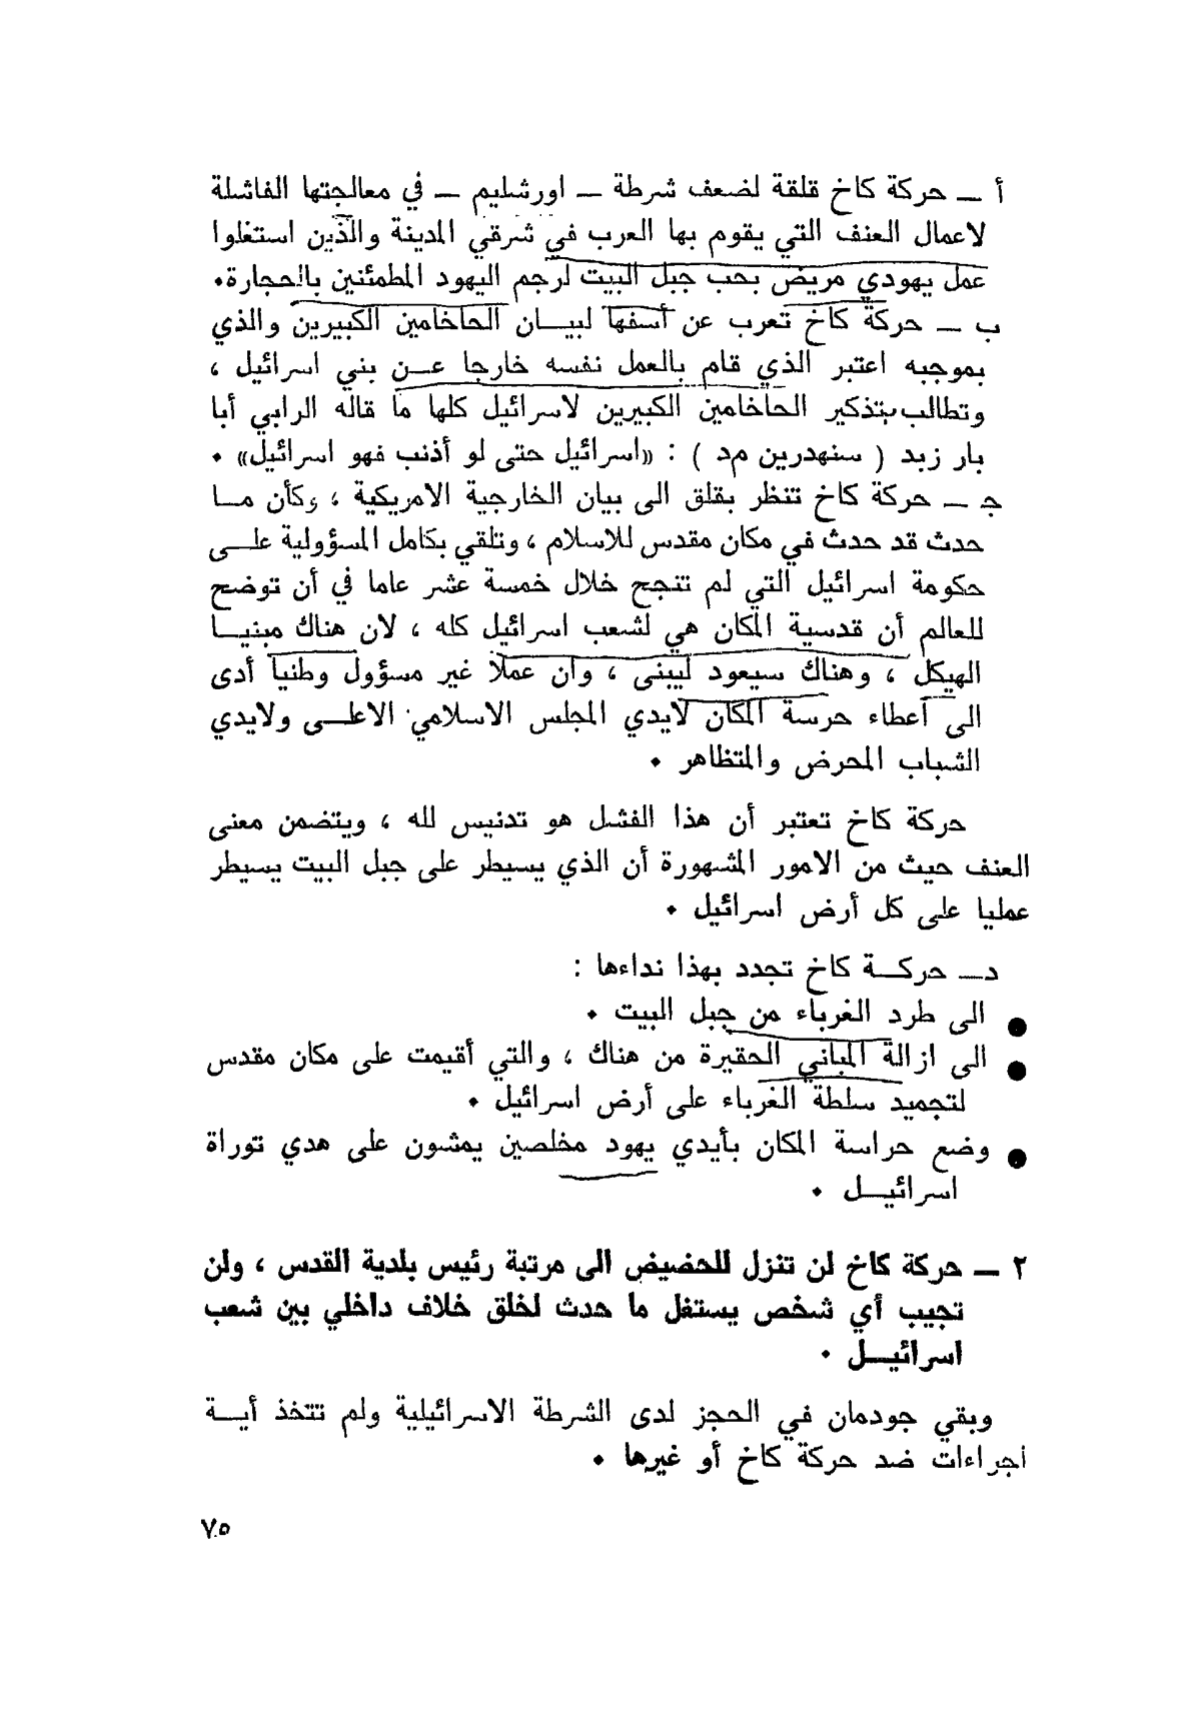 أ ــ حركة كاخ قلقة لضعف شرطة ــ اورشليم ــ في معالجتها الفاشلة
لاعمال العنف التي يقوم بها العرب في شرقي المدينة والذين استغلوا
عمل يهودي مريض بحب جبل البيت لرجم اليهود المطمئنين بالحجارة.
ب ــ حركة كاخ تعرب عن أسفها لبيـــان الحاخامين الكبيرين والذي
بموجبه اعتبر الذي قام بالعمل نفسه خارجا عــن بني اسرائيل ،
وتطالب بتذكير الحاخامين الكبيرين لاسرائيل كلها ما قاله الرابي أبا
بار زبد ( سنهدرين مد ) : «اسرائيل حتى لو أذنب فهو اسرائيل» .
جـ ــ حركة كاخ تنظر بقلق الى بيان الخارجية الامريكية ، وكأن مــا
حدث قد حدث في مكان مقدس للاسلام ، وتلقي بكامل المسؤولية علــى
حكومة اسرائيل التي لم تنجح خلال خمسة عشر عاما في أن توضح
للعالم أن قدسية المكان هي لشعب اسرائيل كله ، لان هناك مبنيــا
الهيكل ، وهناك سيعود ليبنى ، وان عملا غير مسؤول وطنيا أدى
الى أعطاء حرسة المكان لايدي المجلس الاسلامي الاعلــى ولايدي
الشباب المحرض والمتظاهر .
حركة كاخ تعتبر أن هذا الفشل هو تدنيس لله ، ويتضمن معنى
العنف حيث من الامور المشهورة أن الذي يسيطر على جبل البيت يسيطر
عمليا على كل أرض اسرائيل .
د ــ حركـــة كاخ تجدد بهذا نداءها :
● الى طرد الغرباء من جبل البيت .
● الى ازالة المباني الحقيرة من هناك ، والتي أقيمت على مكان مقدس
لتجميد سلطة الغرباء على أرض اسرائيل .
● وضع حراسة المكان بأيدي يهود مخلصين يمشون على هدي توراة
اسرائيــل .
٢ ــ حركة كاخ لن تنزل للحضيض الى مرتبة رئيس بلدية القدس ، ولن
تجيب أي شخص يستغل ما حدث لخلق خلاف داخلي بين شعب
اسرائيــل .
وبقي جودمان في الحجز لدى الشرطة الاسرائيلية ولم تتخذ أيــة
اجراءات ضد حركة كاخ أو غيرها .
٧٥